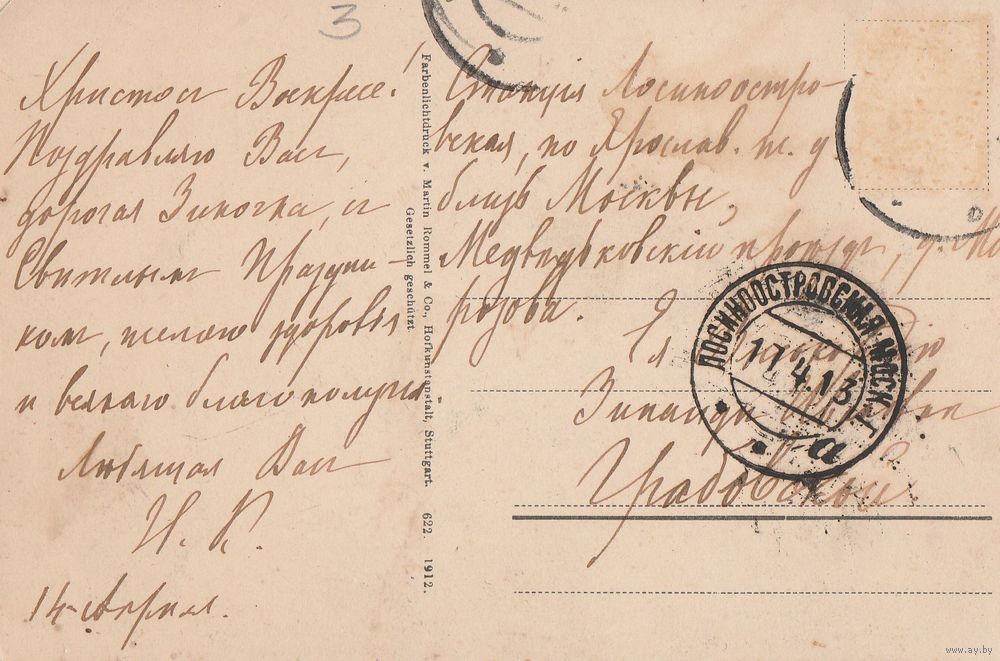 3
Христосъ Воскресе!
Поздравляю Васъ,
дорогая Зиночка, съ
Свѣтлымъ Праздни-
комъ, желаю здоровія
и всякаго благополучія
Любящая Васъ
Н. К.
14 Апрѣля.
Farbenlichtdruck v. Martin Rommel & Co., Hofkunstanstalt, Stuttgart. 622. 1912.
Gesetzlich geschützt.
Станція Лосиноостро-
вская, по Ярослав. ж. д.
близъ Москвы,
Медвѣдковскій проѣздъ, д. Мо
розова.
Ея
Зинаидѣ
Грабовской
ЛОСИНООСТРОВСКАЯ МОСК.
17.4.13
а
www.ay.by